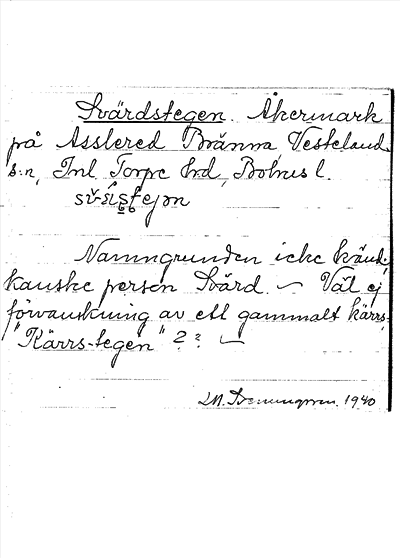 Svärdstegen. Åkermark
på Asslered Bränna, Vesteland
s:n, Inl. Torpe hrd, Bohus l.
Namngrunden icke känd,
kanske person Svärd. ~ Väl ej
förvanskning av ett gammalt kärrs-
"Kärrs-tegen" ? ? ~
1940